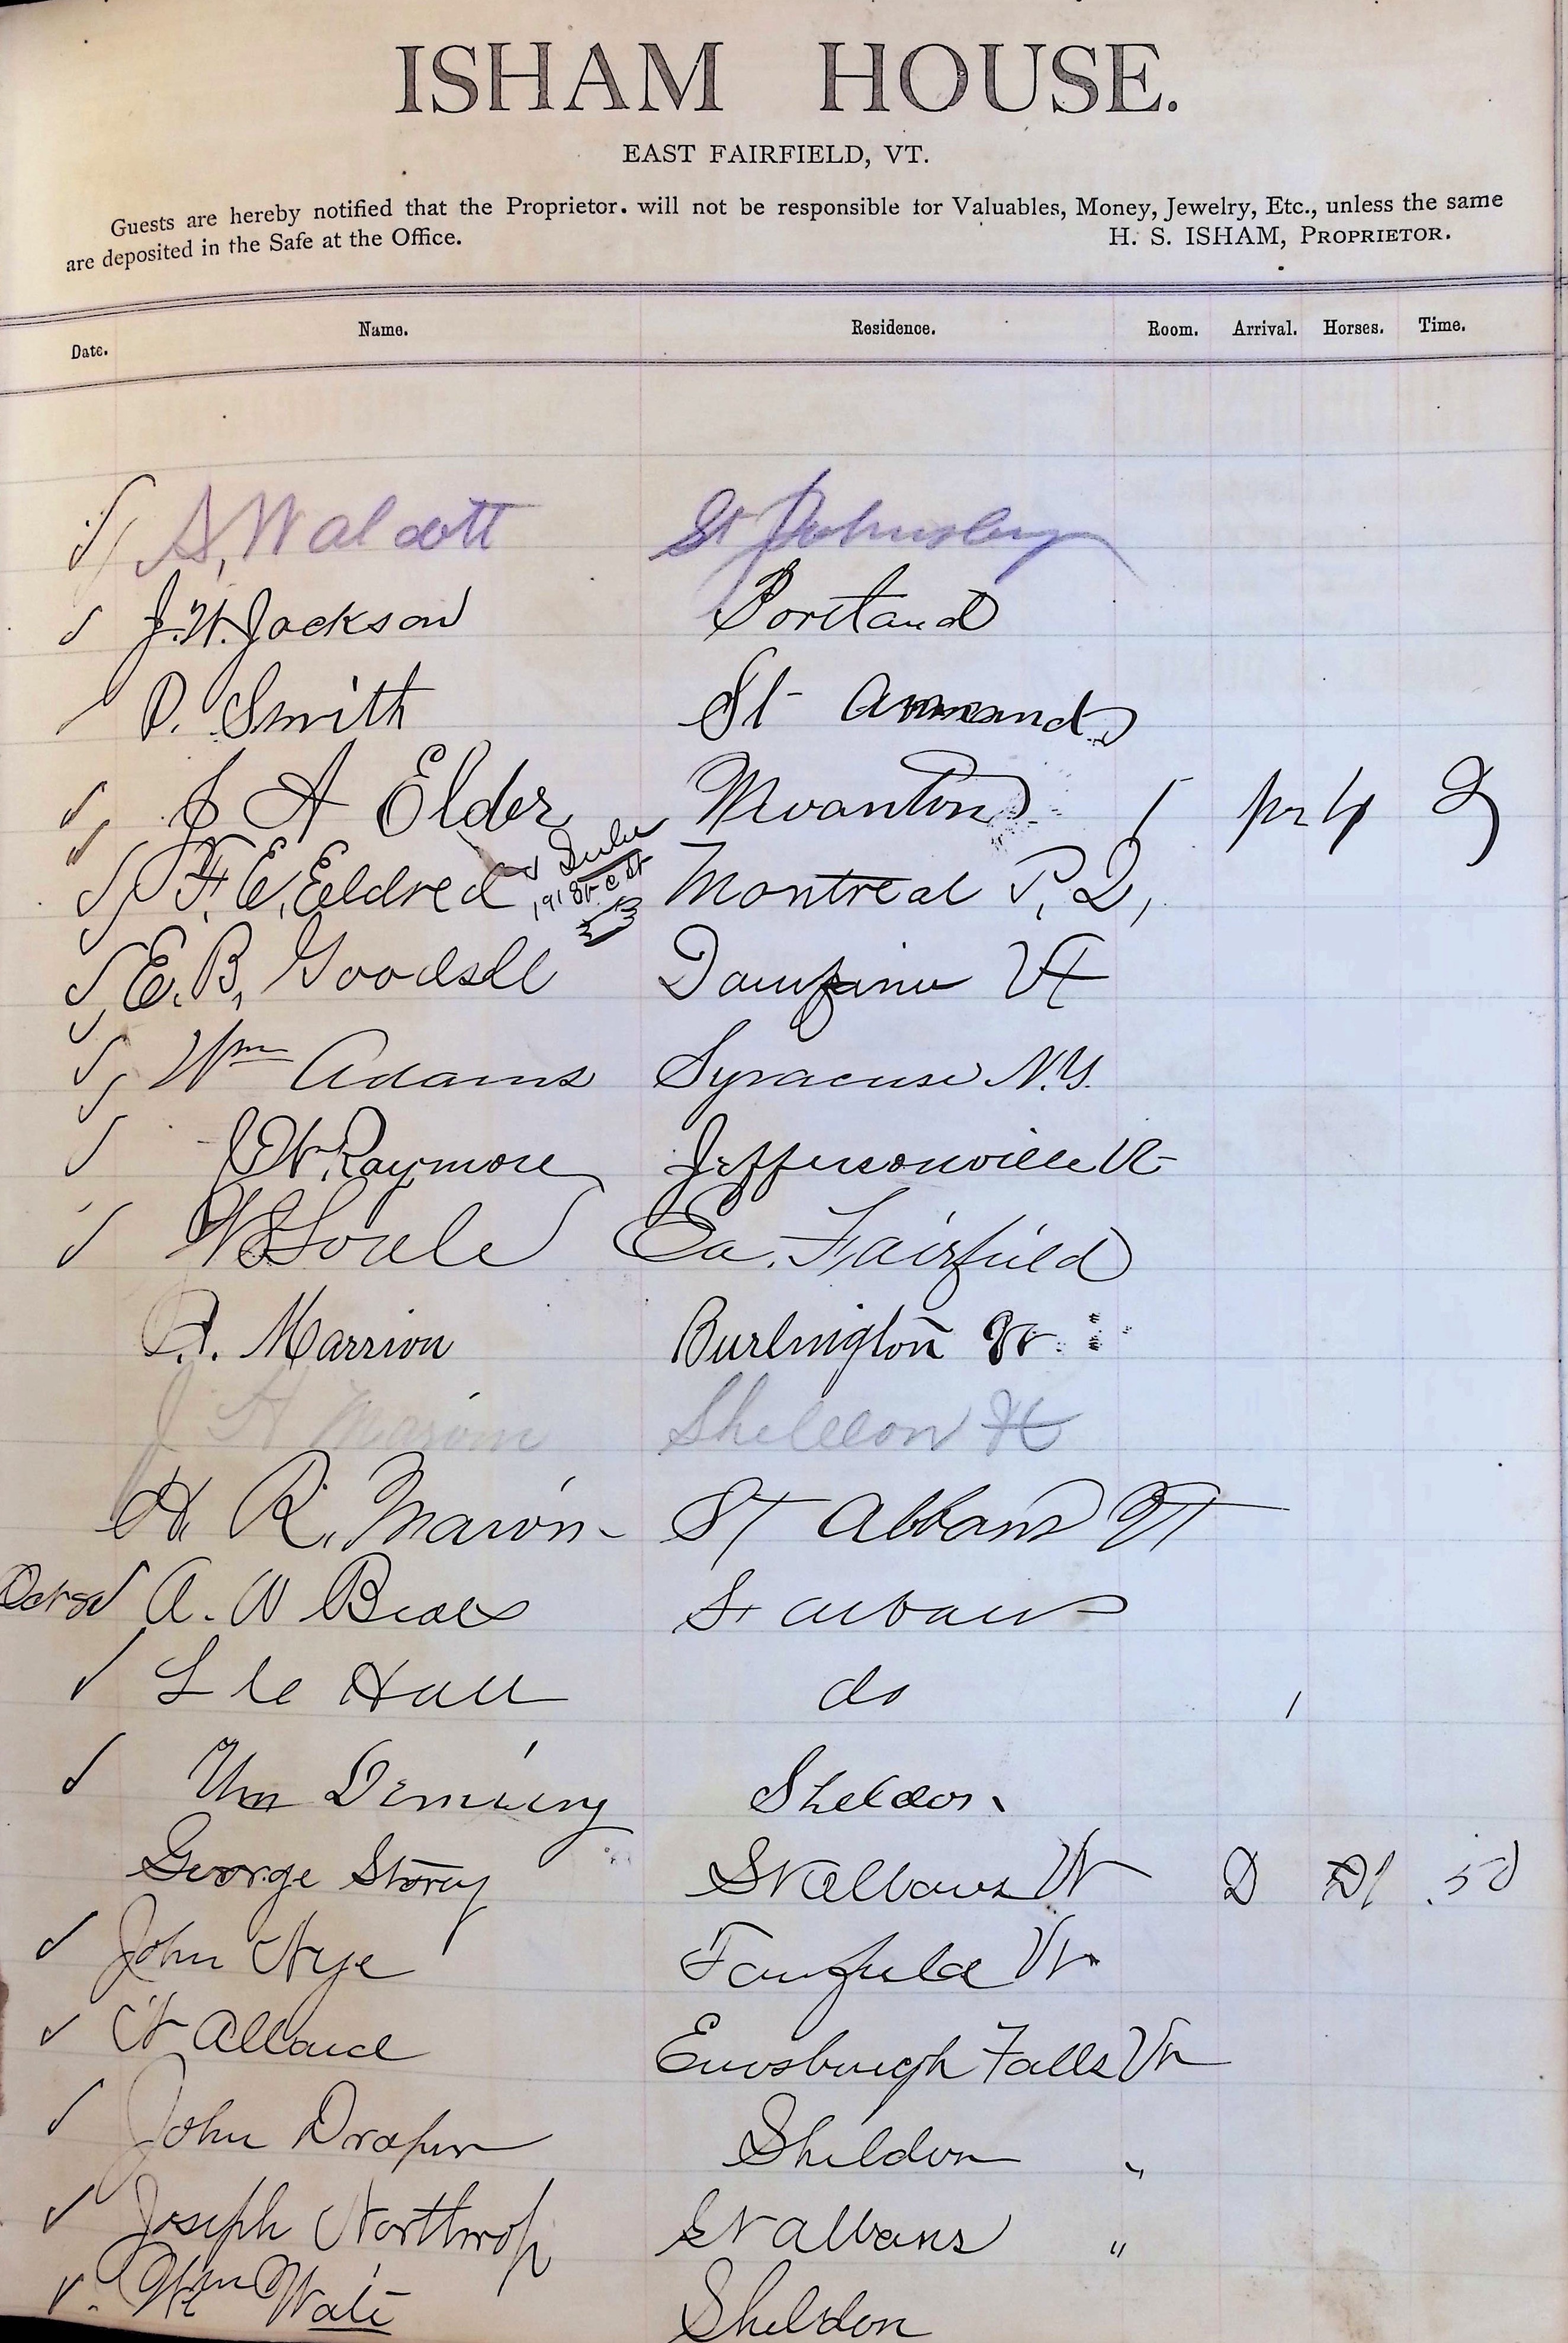 ISHAM HOUSE.
EAST FAIRFIELD, VT.
Guests are hereby notified that the Proprietor. will not be responsible for Valuables, Money, Jewelry, Etc., unless the same
are deposited in the Safe at the Office. H. S. ISHAM, PROPRIETOR.
Date. Name. Residence. Room. Arrival. Horses. Time.
A. Walcott St Johnsbury
J. W. Jackson Portland
D. Smith St Armand
J A Elder Swanton
F. E. Eldred Montreal P. Q,
E. B. Goodsell Vt
Wm Adams Syracuse N.Y.
Raymore Jeffersonville Vt
Soule Ea. Fairfield
Marrion Burlington Vt
J H Sheldon Vt
H. R. Marvin St Albans VT
A. W St Albans
Hall do
Wm Deming Sheldon.
George Storey St Albans Vt D .50
John Nye Fairfield Vt
Allard Enosburgh Falls Vt
John Draper Sheldon "
Joseph Northrop St Albans "
Wm Wate Sheldon